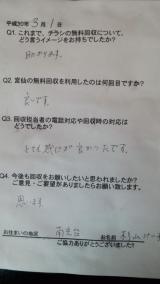 平成30年 3月 1日
Q1. これまで、チラシの無料回収について、
どう言うイメージをお持ちでしたか？
助かります。
Q2. 宮仙の無料回収を利用したのは何回目ですか？
Q3. 回収担当者の電話対応や回収時の対応は
どうでしたか？
とても感じが良かったです。
Q4. 今後も回収をお願いしたいと思われましたか？
ご意見・ご要望がありましたらお願い致します。
思います。
お住まいの地区 南光台 お名前
ご協力ありがとうございました!!